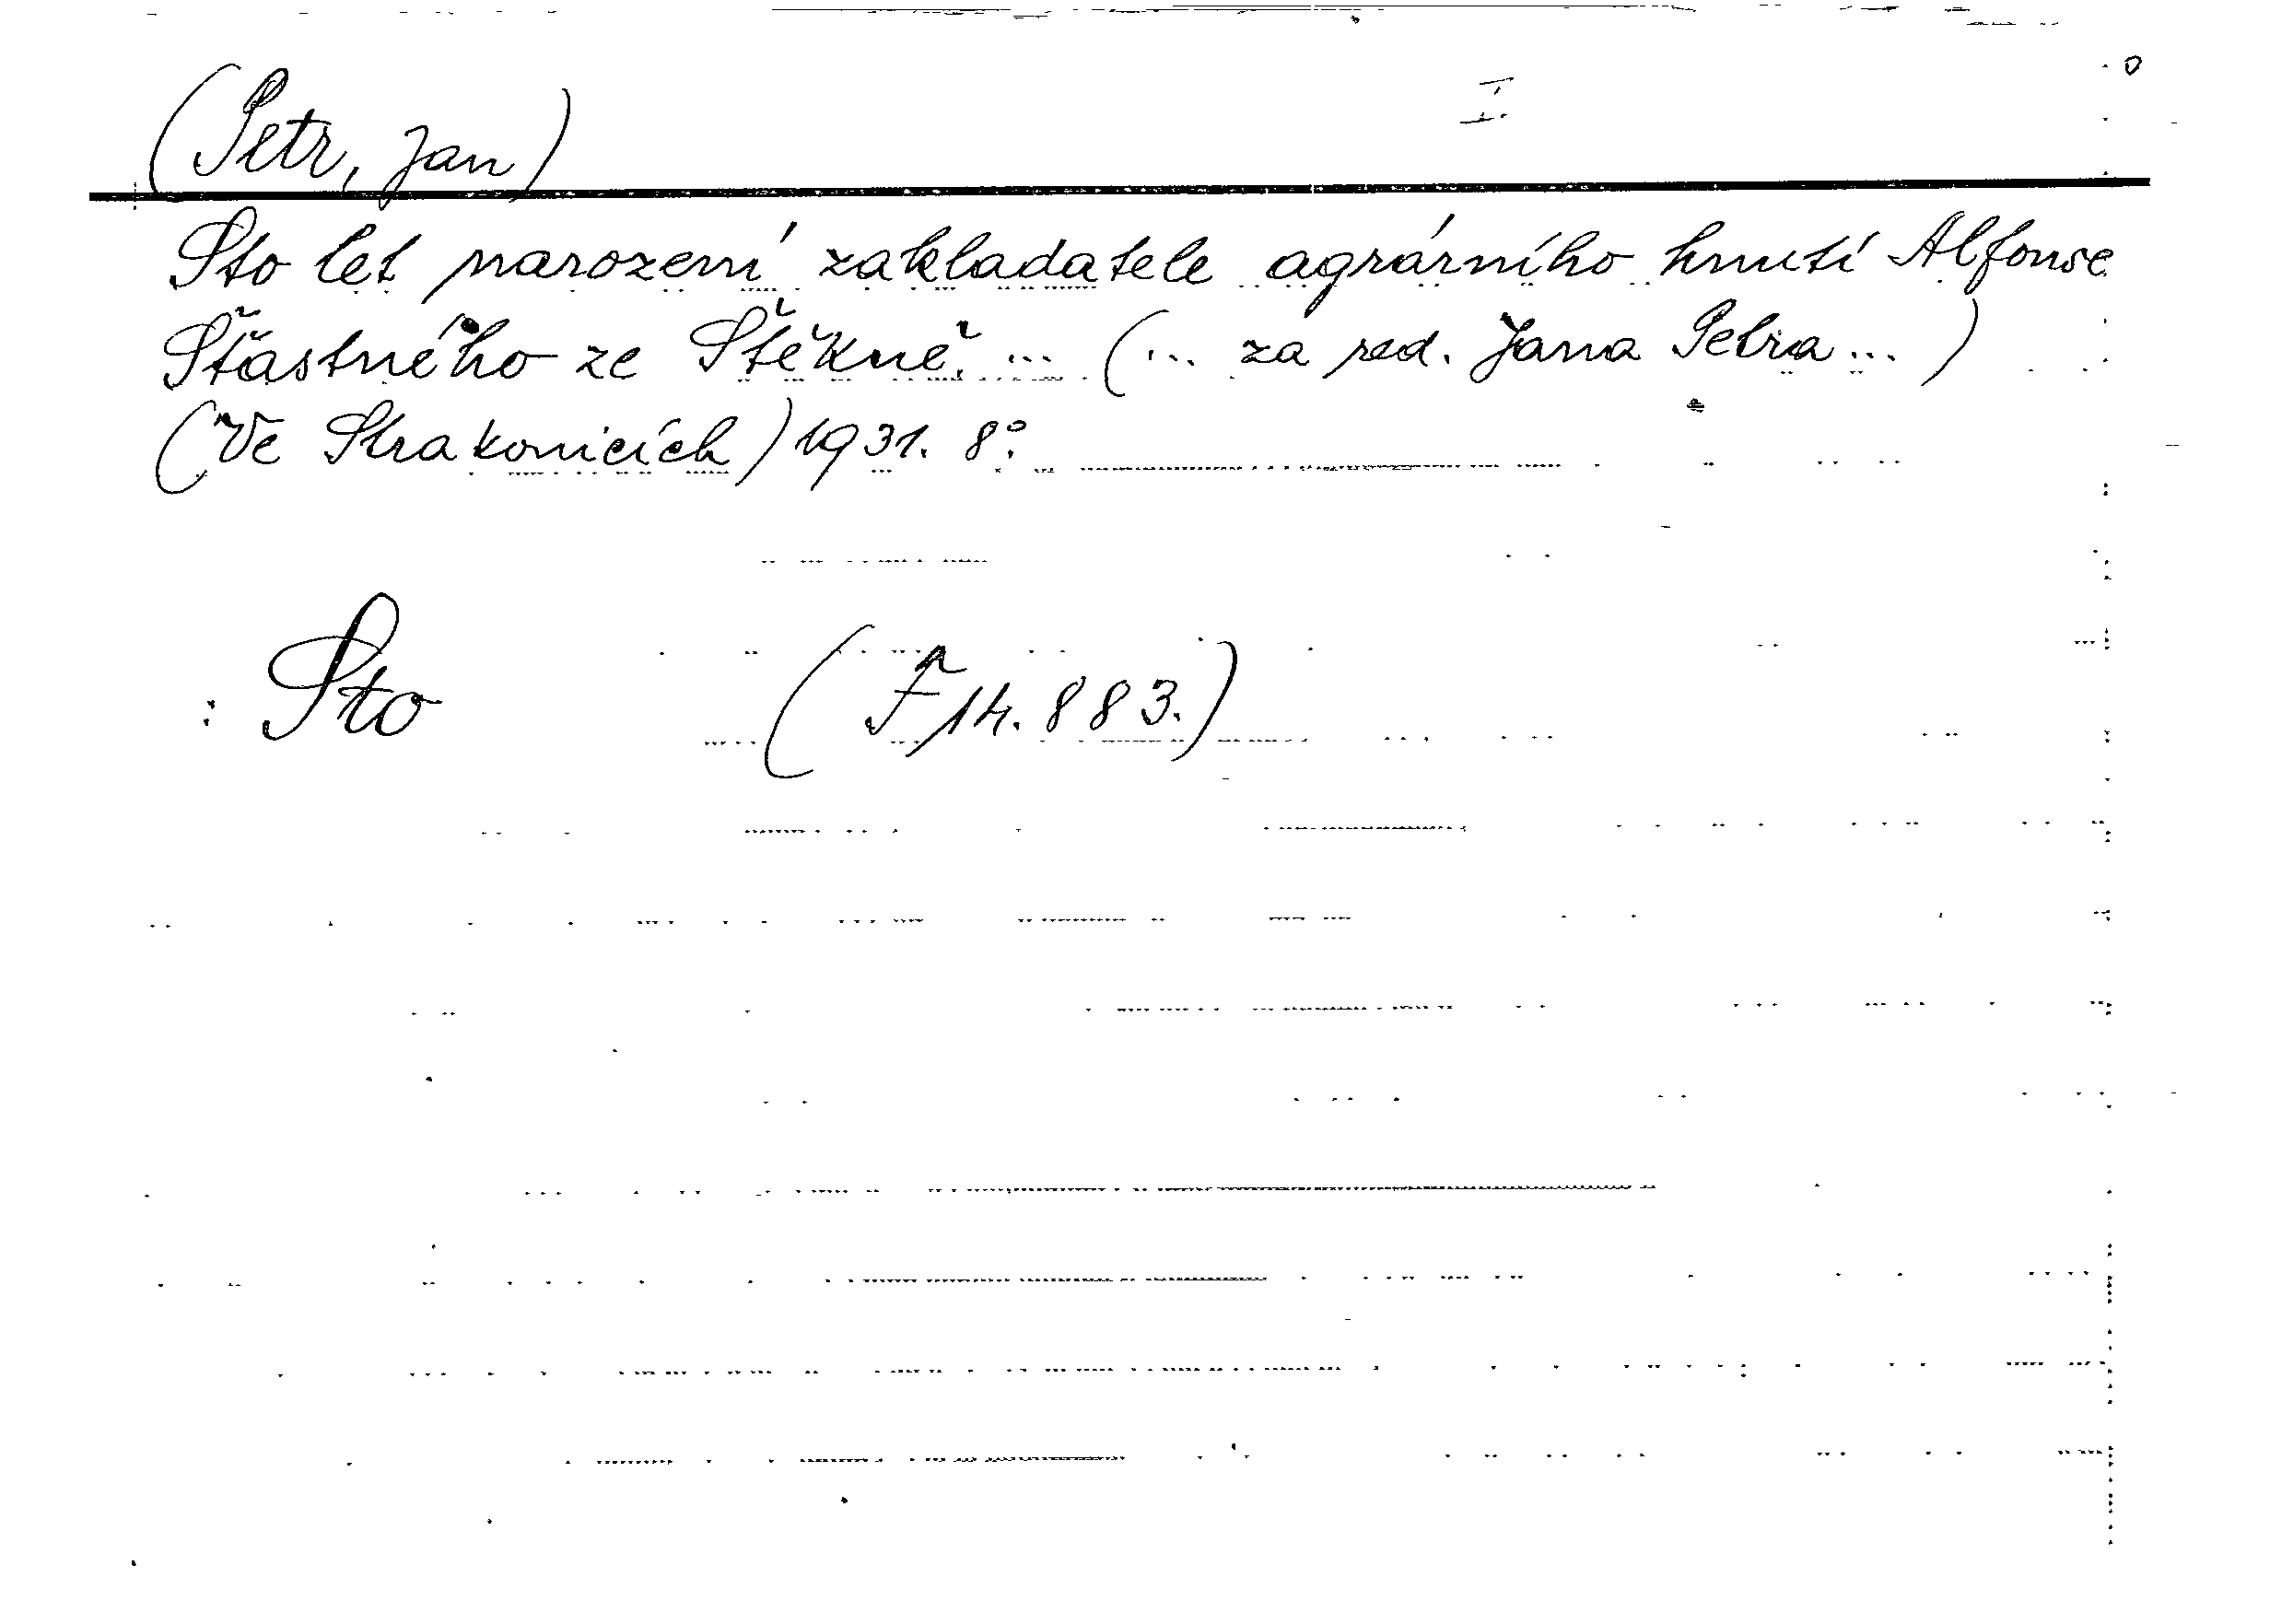 (Petr, Jan) I.
Sto let narození zakladatele agrárního hnutí Alfonse
Šťastného ze Štěkně. ... (... za red. Jana Petra ... )
(Ve Strakonicích) 1931. 8°.
: Sto (F 14.883.)